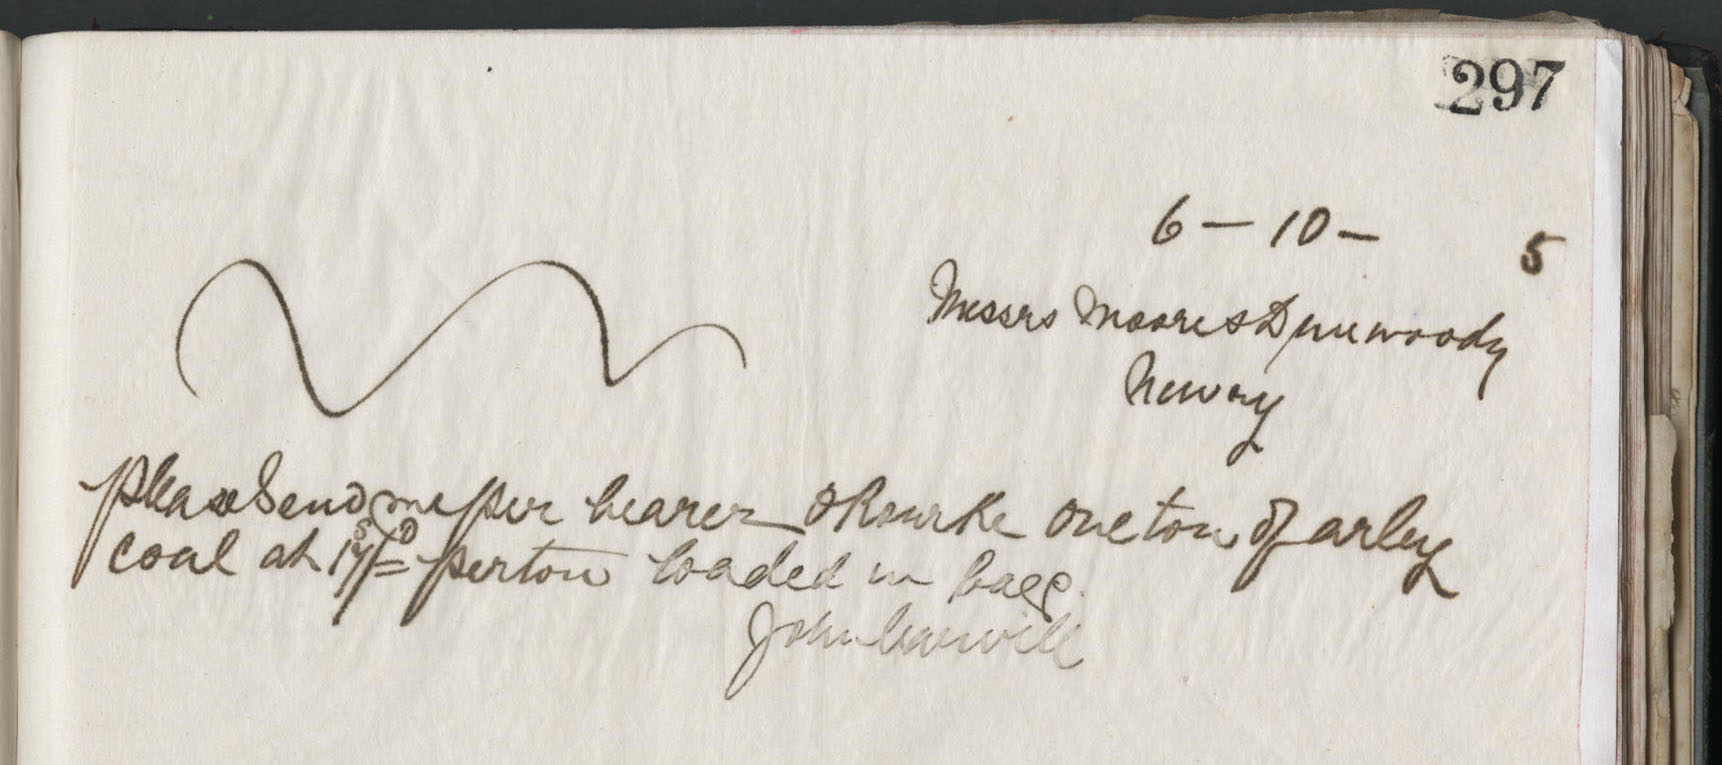 297
6 – 10 – 5
Messrs Moore & Dunwoody
Newry
please Send me per bearer O Rourke one ton of arley
coal at 17/= per ton loaded in bags.
John Carvill